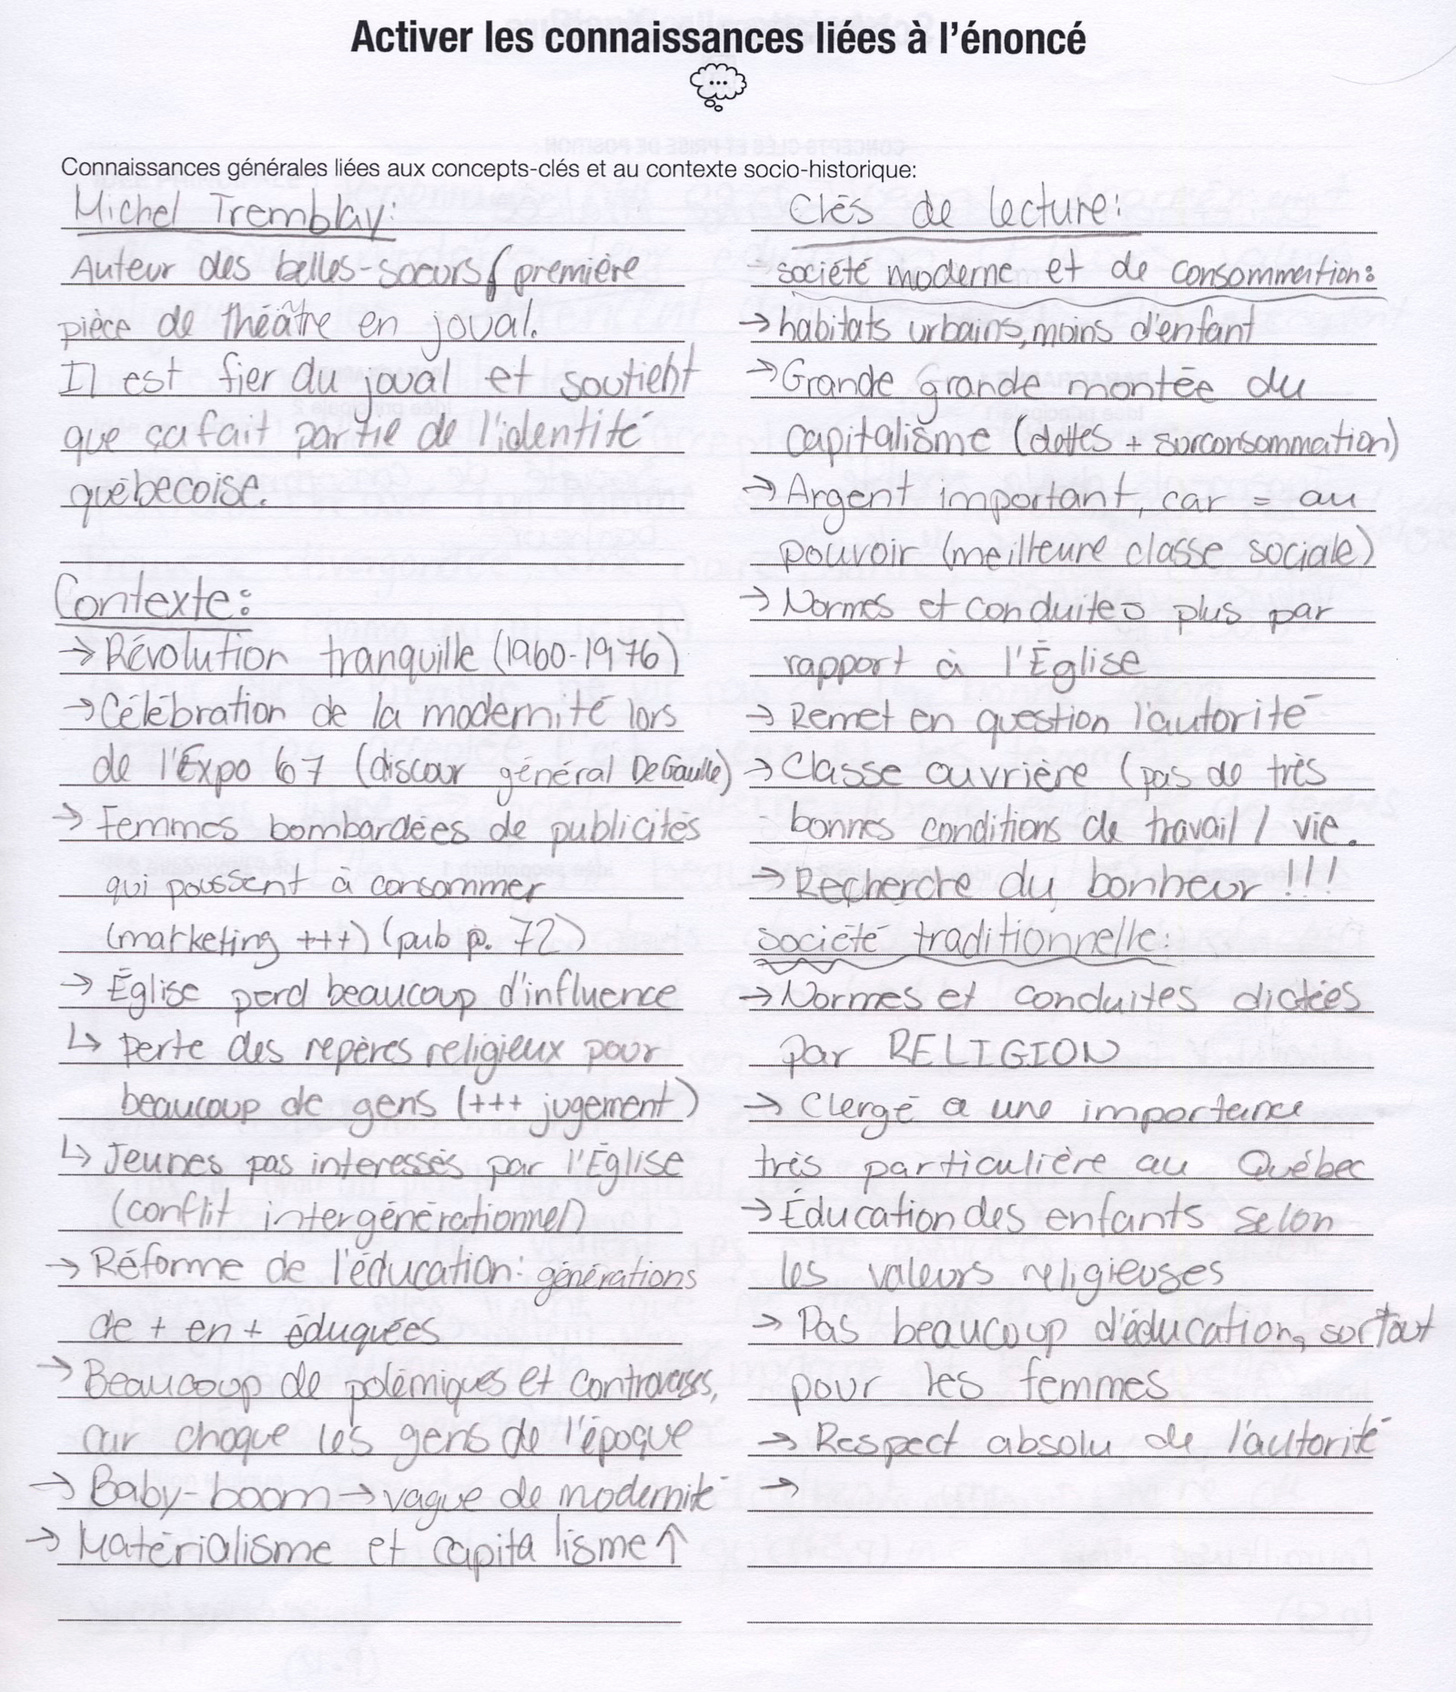 Activer les connaissances liées à l'énoncé
Connaissances générales liées aux concepts-clés et au contexte socio-historique:
Michel Tremblay:
Auteur des belles-soeurs ( première
pièce de théâtre en joual.
Il est fier du joual et soutient
que ça fait partie de l'identité
québecoise.
Contexte:
→ Révolution tranquille (1960-1976)
→ Célébration de la modernité lors
de l'Expo 67 (discour général De Gaulle)
→ Femmes bombardées de publicités
qui poussent à consommer
(marketing +++) (pub p. 72)
→ Église perd beaucoup d'influence
↳ perte des repères religieux pour
beaucoup de gens (+++ jugement)
↳ Jeunes pas interessés par l'Église
(conflit intergénérationnel)
→ Réforme de l'éducation: générations
de + en + éduquées
→ Beaucoup de polémiques et controverses,
car choque les gens de l'époque
→ Baby-boom → vague de modernité
→ Matérialisme et capitalisme ↑
Clés de lecture:
→ société moderne et de consommation:
→ habitats urbains, moins d'enfant
→ Grande grande montée du
capitalisme (dettes + surconsommation)
→ Argent important, car = au
pouvoir (meilleure classe sociale)
→ Normes et conduites plus par
rapport à l'Église
→ Remet en question l'autorité
→ Classe ouvrière (pas de très
bonnes conditions de travail / vie.
→ Recherche du bonheur !!!
société traditionnelle:
→ Normes et conduites dictées
par RELIGION
→ Clergé a une importance
très particulière au Québec
→ Éducation des enfants selon
les valeurs religieuses
→ Pas beaucoup d'éducation, surtout
pour les femmes
→ Respect absolu de l'autorité
→